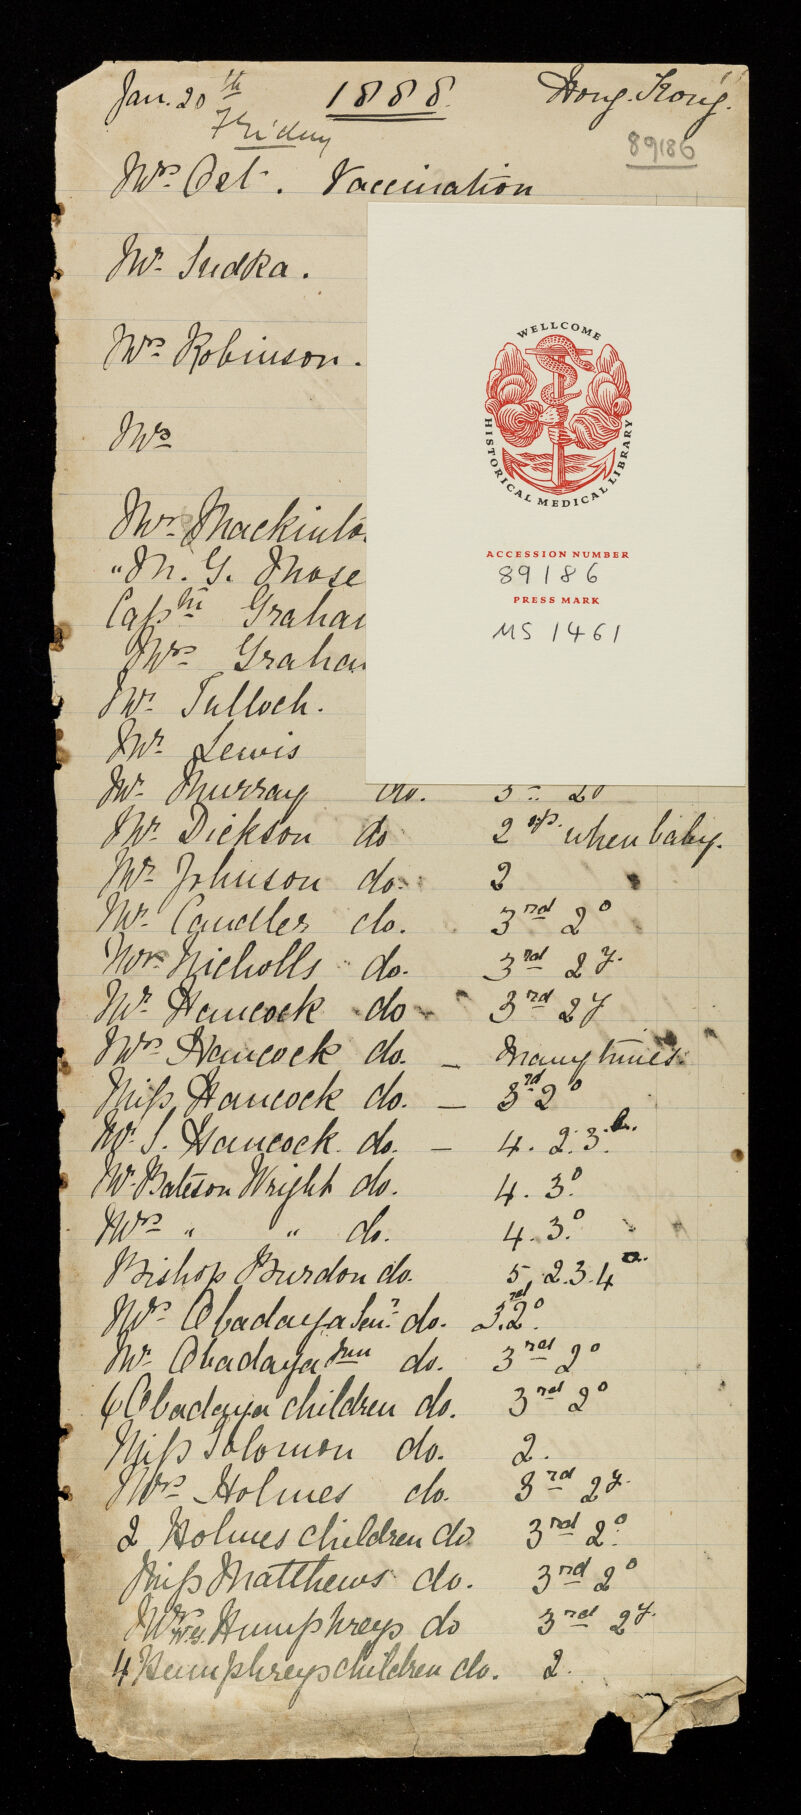 Jan. 20th 1888 Hong Kong.
Friday
89186
Mrs Ost. Vaccination
Mr
Mrs Robinson.
Mrs
Mr Mackinto
" M. G. Mose
Captn Graha
Mrs Graha
Mr Tulloch.
Mr Lewis
Mr Murray do. 3rd 20
Mr Dickson do 2 when baby.
Mr Johnson do. 2
Mr Candler do. 3rd 2o
Nicholls do. 3rd 2y.
Mr Hancock do 3rd 2y
Mrs Hancock do. – Many times.
Miss Hancock do. – 3rd 2o
Mr S. Hancock. do. – 4. 2. 3.
Mr Bateson Wright do. 4. 3o.
Mrs " " do. 4. 3.o
Bishop Burdon do. 5, 2. 3. 4
Mrs Obadaya Senr do. 3rd. 2o.
Mr Obadaya Jun do. 3rd 2o
6 Obadaya children do. 3rd 2o
Miss Solomon do. 2.
Mrs Holmes do. 3rd 2y.
2 Holmes children do 3rd 2o.
Miss Matthews do. 3rd 2o
Mrs Humphreys do 3rd 2y.
4 Humphreys children do. 2.
WELLCOME
HISTORICAL MEDICAL LIBRARY
ACCESSION NUMBER
89186
PRESS MARK
MS 1461